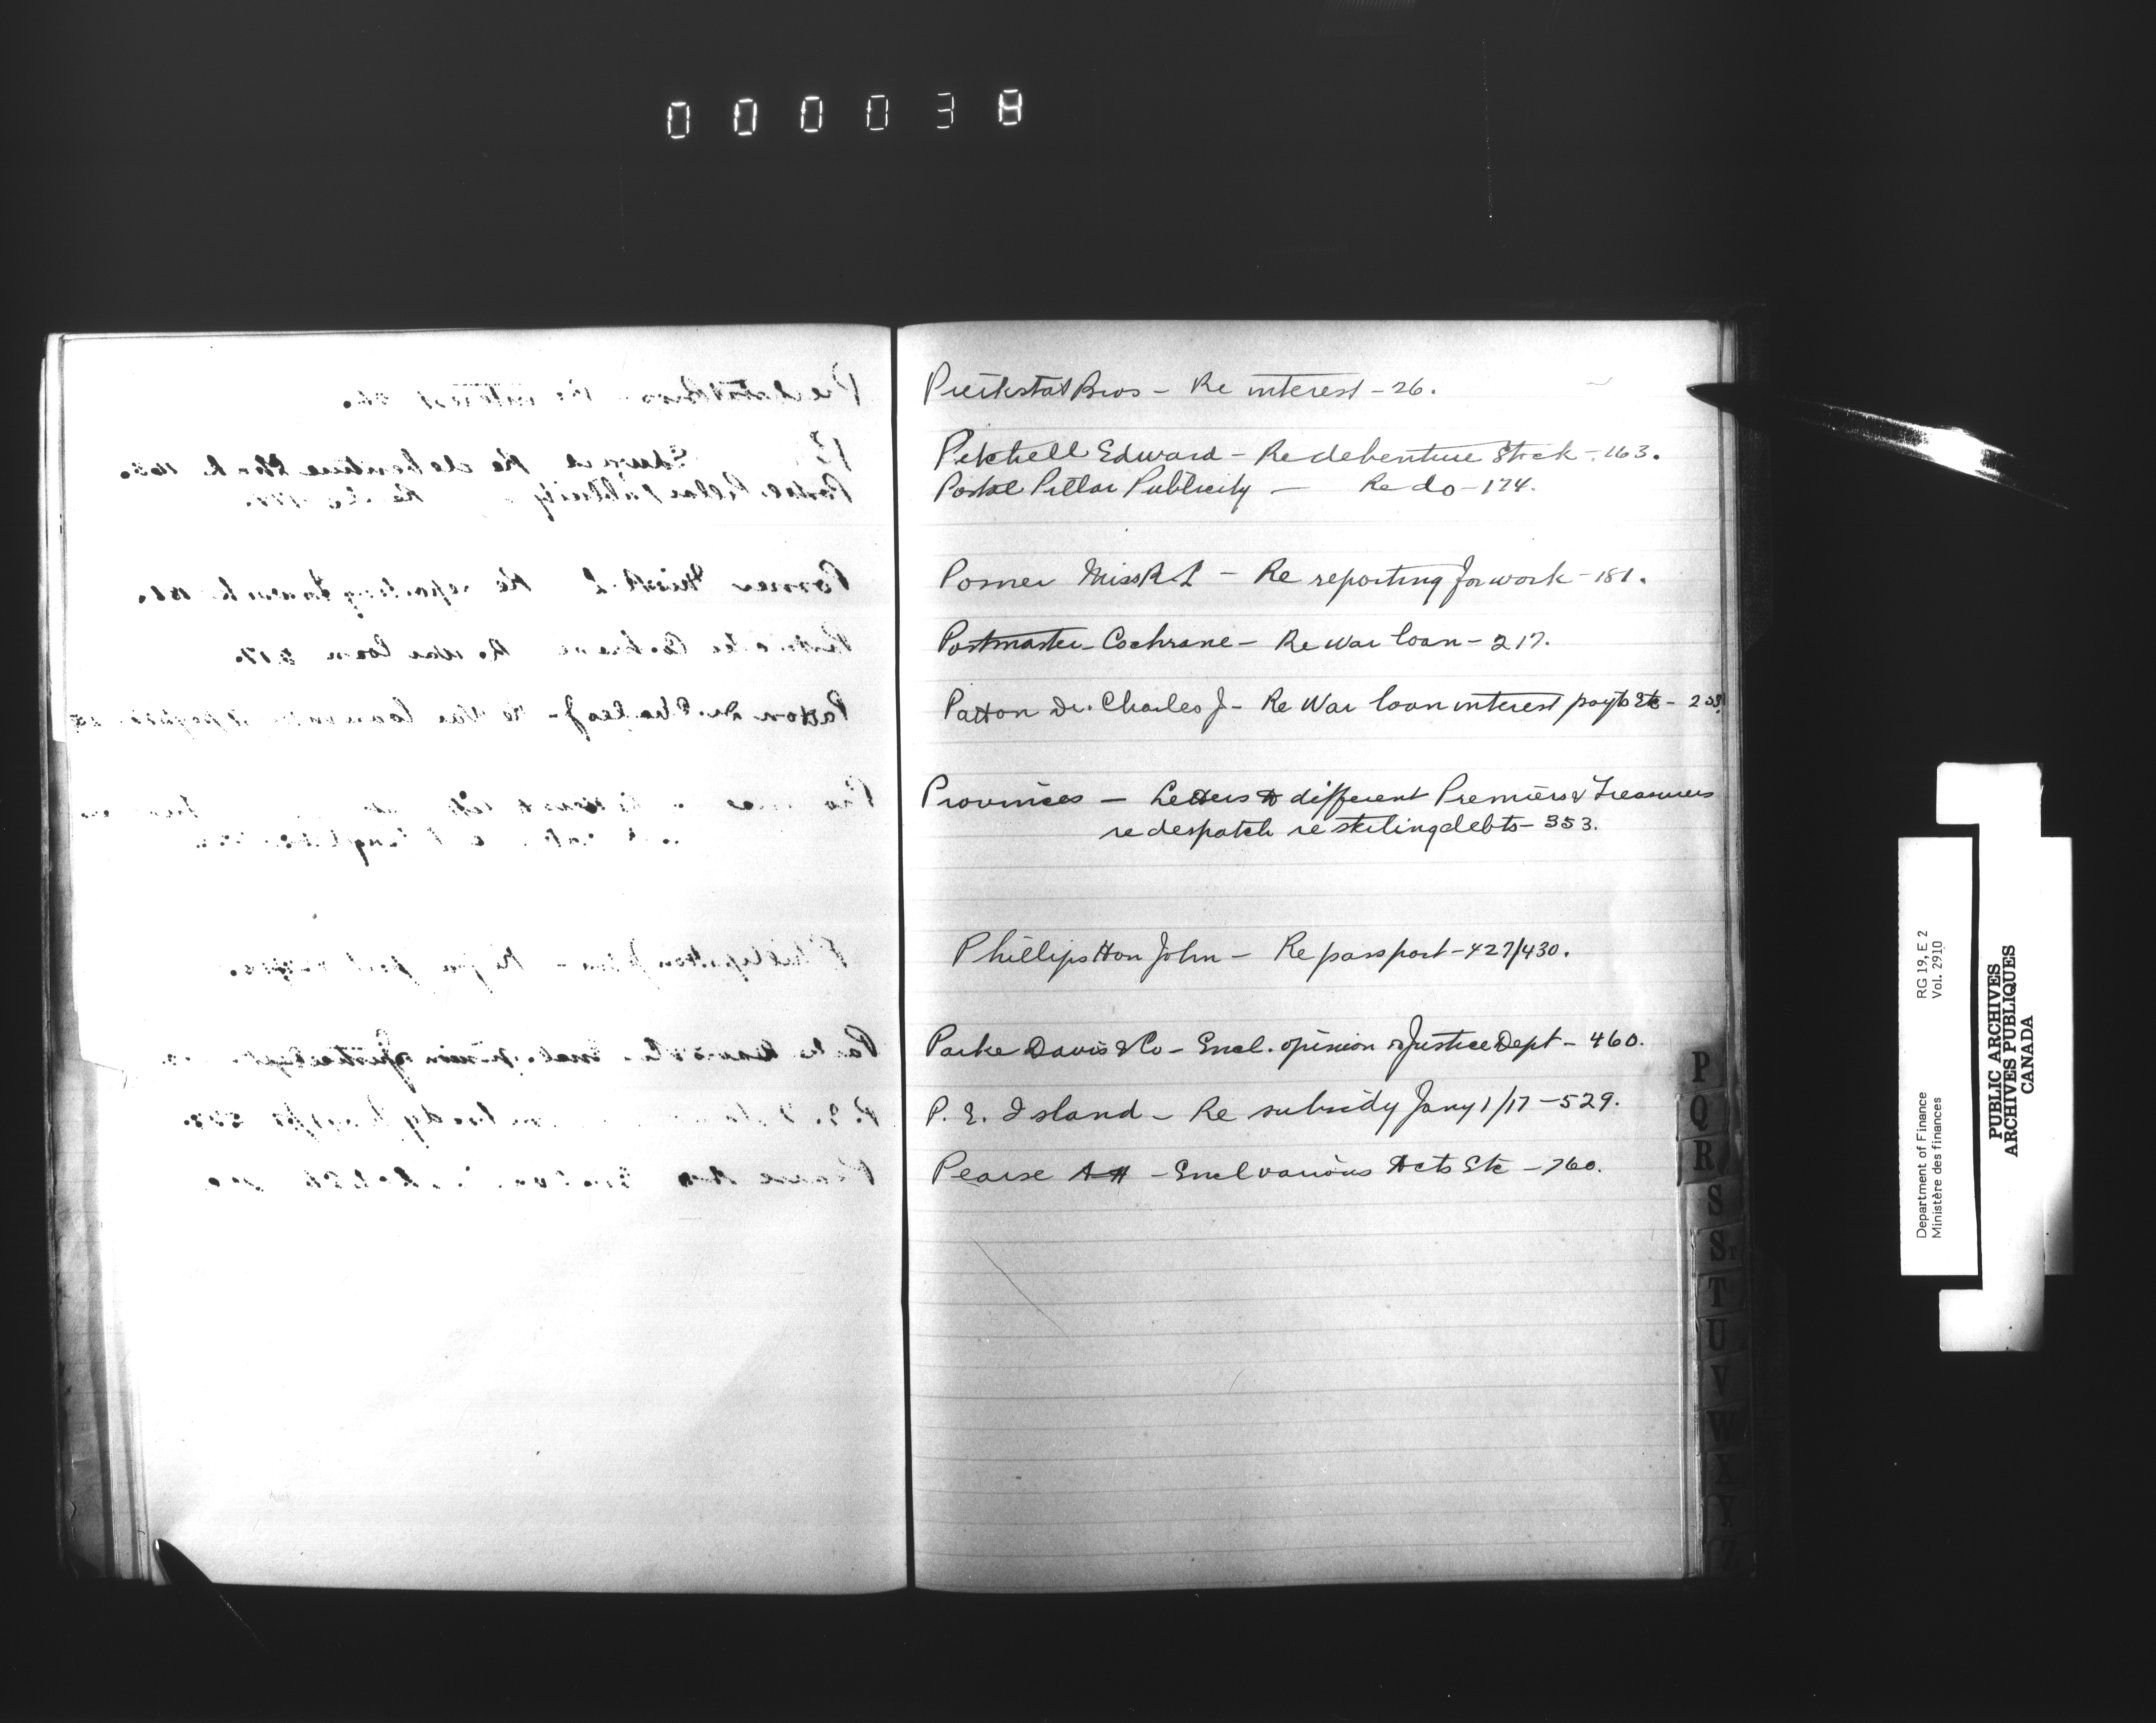 000038
Bros - Re interest - 26.
Petchell Edward - Re debenture Stock - 163.
Postal Pillar Publicity - Re do - 174.
Posner Miss R L - Re reporting for work - 181.
Postmaster Cochrane - Re War loan - 217.
Patton Dr. Charles J - Re War loan interest payts Etc -
Provinces - Letters to different Premiers & Treasurers
re despatch re sterling debts - 353.
Phillips Hon John - Re passport - 427/430.
Parke Davis & Co - Encl. opinion of Justice Dept - 460.
P. E. Island - Re subsidy Jany 1/17 - 529.
Pearse A H - Encl various Acts Etc - 760.
P
Q
R
S
T
U
V
W
X
Y
Z
Department of Finance RG 19, E 2
Ministère des finances Vol. 2910
PUBLIC ARCHIVES
ARCHIVES PUBLIQUES
CANADA